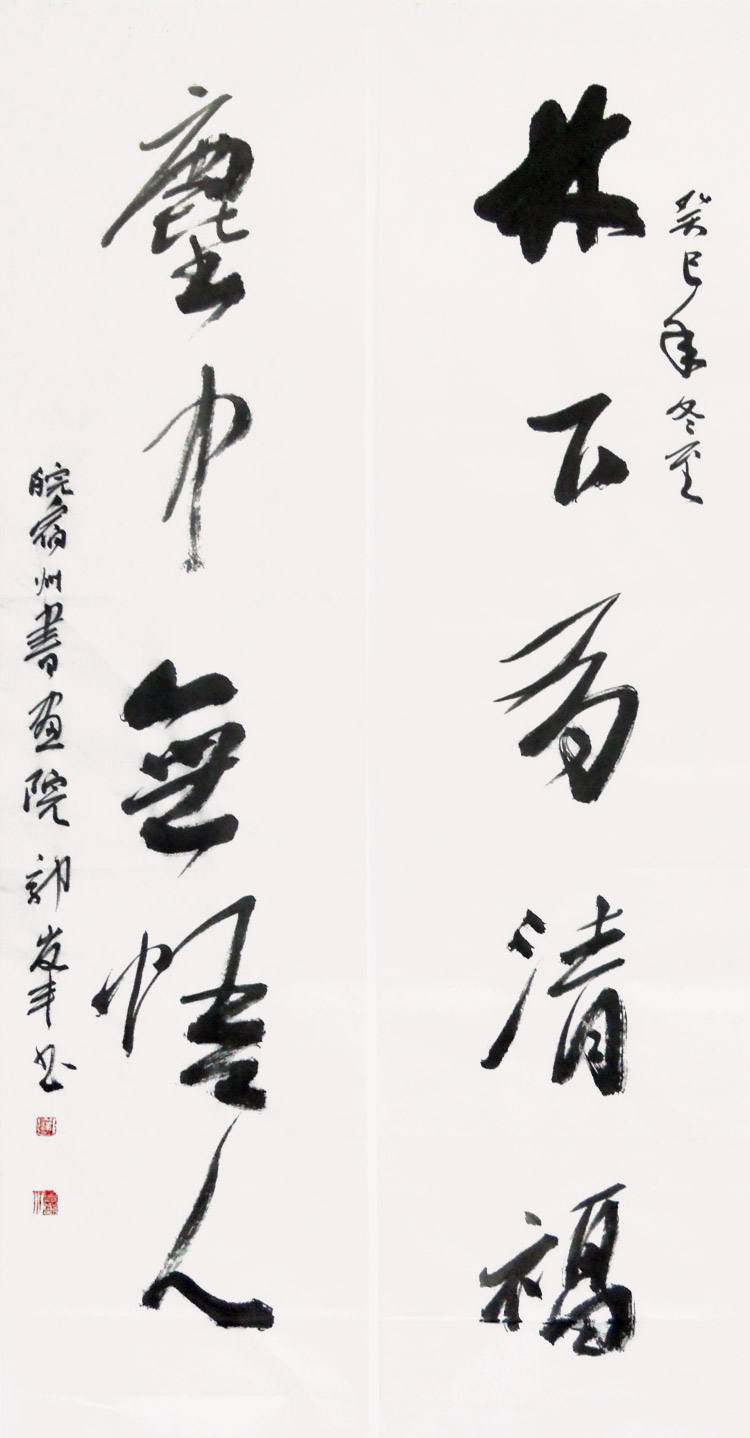 癸巳年冬至
林下有清福
塵中無悟人
皖宿州書画院郭峯书